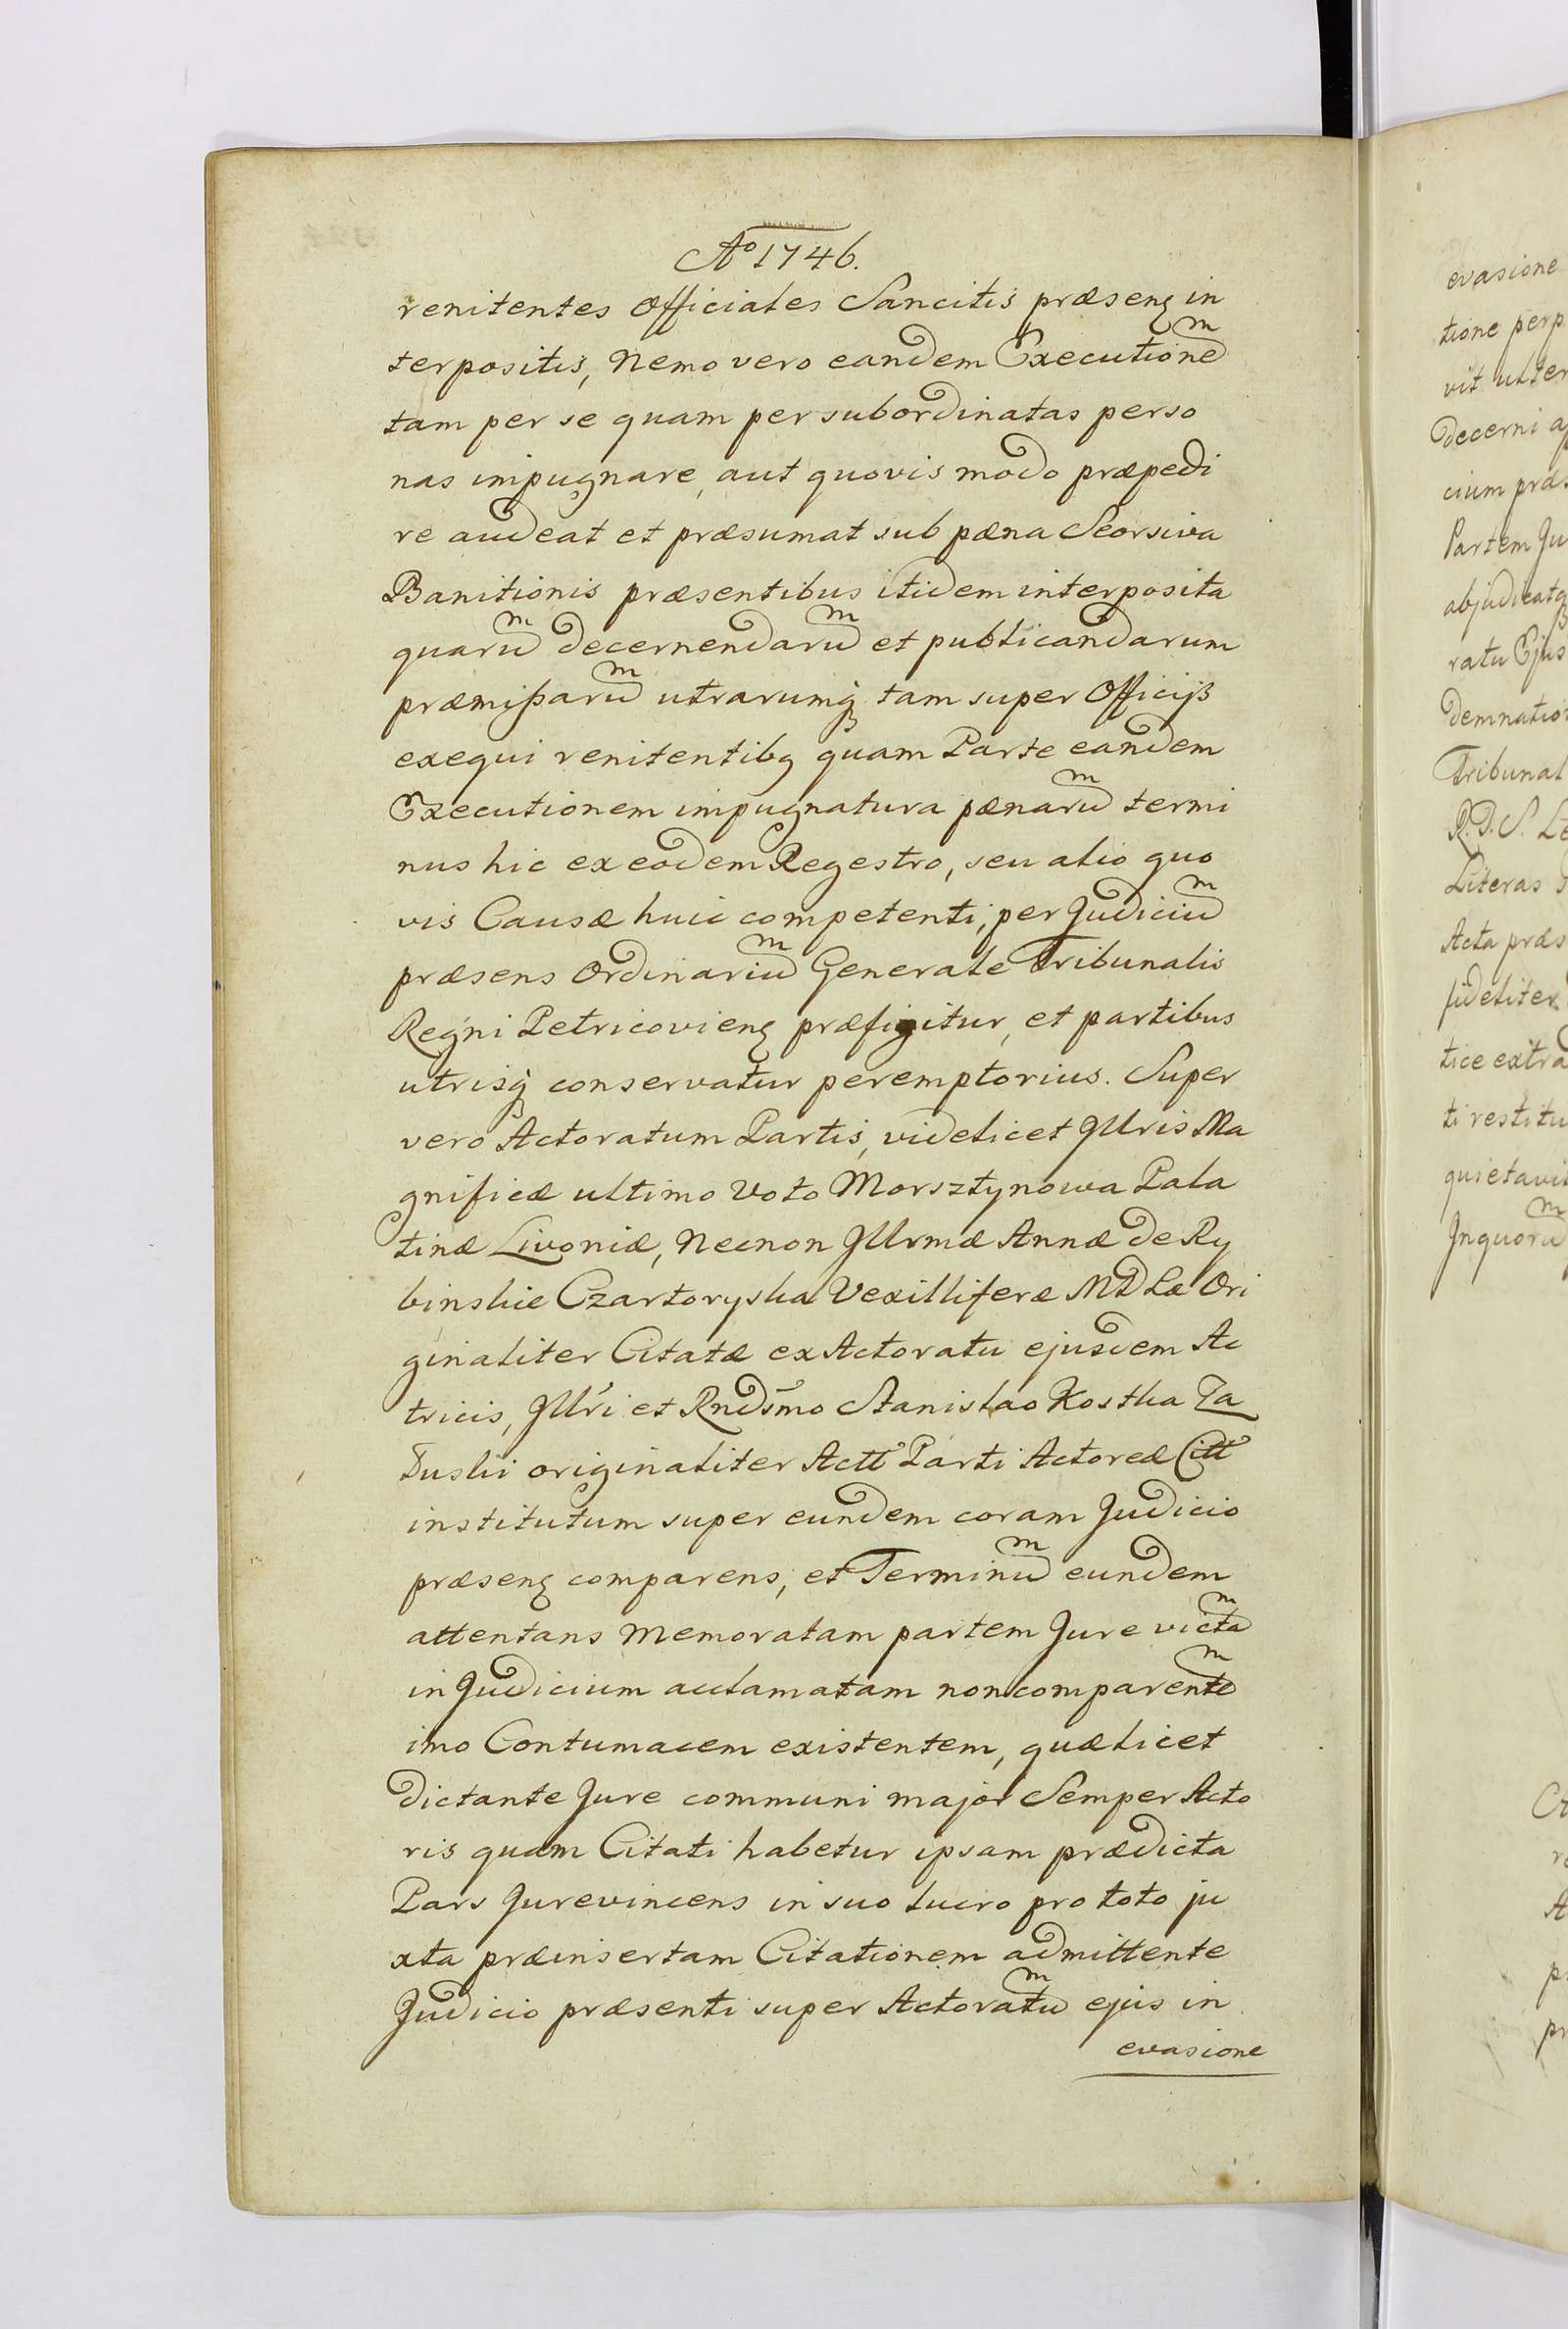 Aº 1746.
renitentes Officiales Sancitis præsenꝫ in
terpositis, Nemo vero eandem Executionem
tam per se quam per subordinatas perso
nas impugnare, aut quovis modo præpedi
re audeat et præsumat sub pæna Seorsiva
Banitionis præsentibus itidem interposita
quarum decernendarum et publicandarum
præmißarum utrarumqꝫ tam super Officijß
exequi renitentibꝫ quam Parte eandem
Executionem impugnatura pænarum termi
nus hic ex eodem Regestro, seu alio quo
vis Causæ huic competenti, per Judicium
præsens Ordinarium Generale Tribunalis
Regni Petricovienꝫ præfigitur, et partibus
utrisqꝫ conservatur peremptorius. Super
vero Actoratum Partis, videlicet Jllris Ma
gnificæ ultimo Voto Morsztynowa Pala
tinæ Livoniæ, Necnon Jllrmæ Annæ de Ry
binskie Czartoryska Vexilliferæ MDLæ Ori
ginaliter Citatæ ex Actoratu ejusdem Ac
tricis, Jllri et Rndsmo Stanislao Kostka Za
łuski originaliter Actt Parti Actoreæ Citt
institutum super eundem coram Judicio
præsenꝫ comparens, et Terminum eundem
attentans Memoratam partem Jure victam
in Judicium acclamatam non comparentem
imo Contumacem existentem, quælicet
dictante Jure communi major Semper Acto
ris quam Citati habetur ipsam prædicta
Pars Jurevincens in suo lucro pro toto ju
xta præinsertam Citationem admittente
Judicio præsenti super Actoratum ejus in
evasione
evasione
tione perp
vit ulter
decerni a
cium præs
Partem Ju
abjudicatq
ratu Ejus
demnation
Tribunal
R.D.S. Le
Literas
Acta præs
fideliter
tice extra
ti restitu
quietavit
Jnquorum